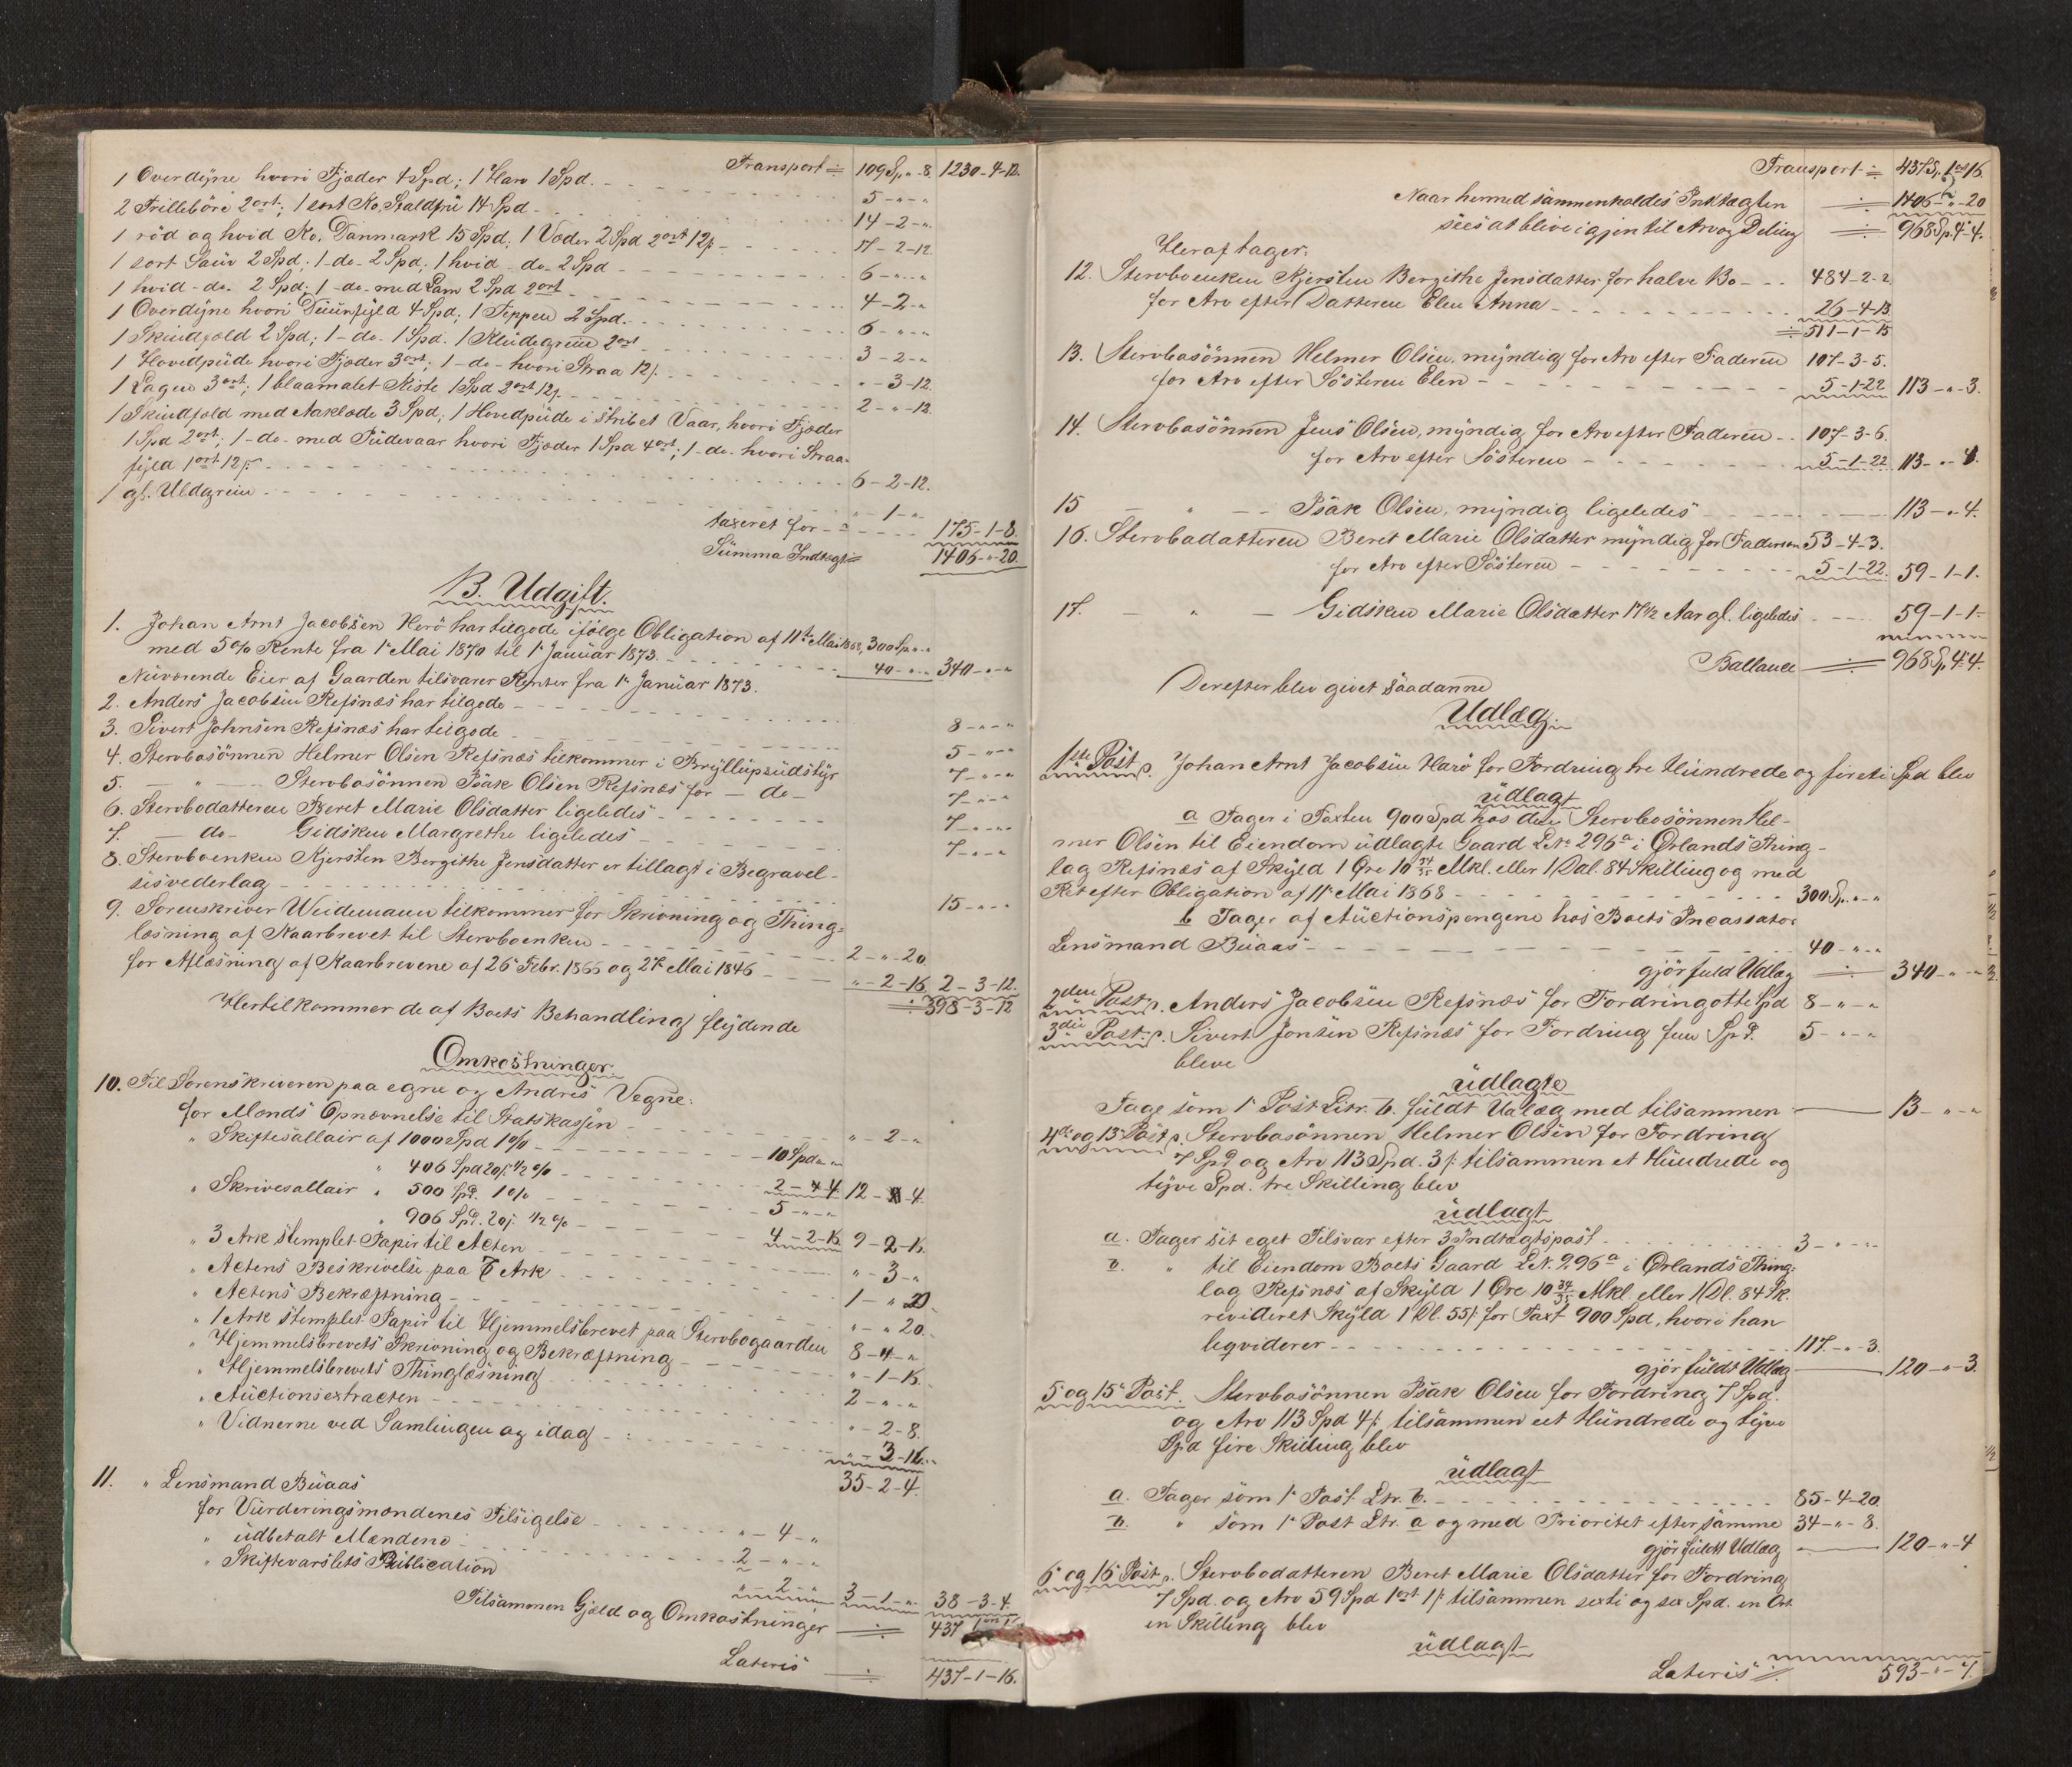 Transport ÷ 109 Sp. " 8. 1230-4-12.
1 Overdyne hvori Fjæder 4 Spd; 1 Harv 1 Spd. 5-"-"
2 Trilleböre 2 ort; 1 sort Ko, Staldfrú 14 Spd 14-2-"
1 röd og hvid Ko, Danmark 15 Spd; 1 Væder 2 Spd 2 ort 12 s 17-2-12
1 sort Saúv 2 Spd; 1-do- 2 Spd; 1 hvid-do- 2 Spd 6-"-"
1 hvid-do- 2 Spd; 1-do- med Lam 2 Spd 2 ort 4-2-"
1 Overdyne hvori Dúúnfyld 4 Spd; 1 Teppen 2 Spd. 6-"-"
1 Skindfeld 2 Spd; 1-do- 1 Spd. 1 Klúdegrein 2 ort 3-2-"
1 Hovedpúde hvori Fjæder 3 ort; 1-do- hvori Straa 12 s. "-3-12.
1 Lagen 3 ort; 1 blaamalet Kiste 1 Spd 2 ort 12 s. 2-"-12.
1 Skindfeld med Aaklæde 3 Spd; 1 Hovedpúde i stribet Vaar, hvori Fjæder
1 Spd 2 ort; 1-do- med Púdevaar hvori Fjæder 1 Spd 4 ort; 1-do- hvori Straa-
fyld 1 ort 12 s 6-2-12.
1 gl. Uldgrein "-1-"
taxeret for 175-1-8.
Súmma Indtægt 1406-"-20.
B. Udgift.
1. Johan Arnt Jacobsen Harö har tilgode ifölge Obligation af 11te Mai 1868, 300 Sp "-"
med 5 % Rente fra 1 Mai 1870 til 1 Janúar 1873. 40-"-" 340-"-"
Núværende Eier af Gaarden tilsvarer Renter fra 1 Janúar 1873.
2. Anders Jacobsen Refsnæs har tilgode 8-"-"
3. Sivert Johnsen Refsnæs har tilgode 5-"-"
4. Stervbosönnen Helmer Olsen Refsnæs tilkommer i Bryllúpsúdstyr 7-"-"
5. - " - Stervbosönnen Isak Olsen Refsnæs for - do - 7-"-"
6. Stervbodatteren Beret Marie Olsdatter ligeledes 7-"-"
7. - do - Gidsken Margrethe ligeledes 7-"-"
8. Stervboenken Kjersten Bergithe Jensdatter er tillagt i Begravel-
sesvederlag 15-"-"
9. Sorenskriver Weidemann tilkommer for Skrivning og Thing-
læsning af Kaarbrevet til Stervboenken 2-"-20
for Aflæsning af Kaarbrevene af 26 Febr. 1866 og 27 Mai 1846 "-2-16 2-3-12.
÷ 398-3-12
Hertil kommer de af Boets Behandling flydende
Omkostninger.
10. Til Sorenskriveren paa egne og Andres Vegne:
for Mænds Opnævnelse til Statskassen "-2-"
" Skiftesallair af 1000 Spd 1 % 10 Spd "-"
" 406 Spd 20 s. ½ % 2-"-4 12-"-4.
" Skriversallair " 500 Spd. 1 % 5-"-"
" 906 Spd. 20 s. ½ % 4-2-16 9-2-16.
" 3 Ark stemplet Papir til Acten "-3-"
" Actens Beskrivelse paa 5 Ark 1-"-20
" Actens Bekræftning "-"-20.
" 1 Ark stemplet Papir til Hjemmelsbrevet paa Stervbogaarden 8-4-"
" Hjemmelsbrevets Skrivning og Bekræftning "-1-16.
" Hjemmelsbrevets Thinglæsning 2-"-"
" Auctionsextracten "-2-8.
" Vidnerne ved Samlingen og idag "-3-16.
35-2-4.
11. " Lensmand Búaas
for Vúrderingsmændenes Tilsigelse "-4-"
" údbetalt Mændene 2-"-"
" Skiftevarslets Públication "-2-" 3-1-" 38-3-4.
Tilsammen Gjæld og Omkostninger ÷ 437
Lateris ÷ 437-1-16.
Transport ÷ 437 Sp. 1 ort 16
Naar hermed sammenholdes Indtægten ÷ 1406-"-20
sees at blive igjen til Arv og Deling ÷ 968 Sp. 4-4.
Heraf tager:
12. Stervboenken Kjersten Bergithe Jensdatter for halve Bo 484-2-2
for Arv efter Datteren Elen Anna 26-4-13
÷ 511-1-15
13. Stervbosönnen Helmer Olsen, myndig for Arv efter Faderen 107-3-5.
for Arv efter Sösteren Elen 5-1-22 113-"-3.
14. Stervbosönnen Jens Olsen, myndig for Arv efter Faderen 107-3-6.
for Arv efter Sösteren 5-1-22 113-"-4.
15 - " - Isak Olsen, myndig ligeledes 113-"-4.
16. Stervbodatteren Beret Marie Olsdatter myndig for Faderen 53-4-3.
for Arv efter Sösteren 5-1-22. 59-1-1.
17. - " - Gidsken Marie Olsdatter 17½ Aar gl. ligeledes 59-1-1.
Ballance ÷ 968 Sp 4-4.
Derefter blev givet saadanne
Udlæg.
1ste Post s. Johan Arnt Jacobsen Harö for Fordring tre Húndrede og fireti Spd blev
údlagt
a Tager i Taxten 900 Spd hos den Stervbosönnen Hel-
mer Olsen til Eiendom údlagte Gaard L.Nr. 296 a i Ørlands Thing-
lag Refsnæs af Skyld 1 Øre 10 34/35 Mkl. eller 1 Dal. 84 Skilling og med
Ret efter Obligation af 11 Mai 1868 300 Sp. "-"
b Tager af Aúctionspengene hos Boets Incassator
Lensmand Búaas 40-"-"
gjör fuld Udlæg ÷ 340-"-"
2den Post s. Anders Jacobsen Refsnæs for Fordring otte Spd 8-"-"
3die Post s. Sivert Jonsen Refsnæs for Fordring fem Spd. 5-"-"
bleve
údlagte
Tage som 1 Post Litr. b. fúldt Udlæg med tilsammen 13-"-"
4de og 13 Post s. Stervbosönnen Helmer Olsen for Fordring
7 Spd og Arv 113 Spd. 3 s. tilsammen et Húndrede og
tyve Spd. tre Skilling blev
údlagt
a. Tager sit eget Tilsvar efter 3 Indtægtspost 3-"-"
b. " til Eiendom Boets Gaard L.N. 296 a i Ørlands Thing-
lag Refsnæs af Skyld 1 Øre 10 34/35 Mkl. eller 1 Dl. 84 Sk.
revideret Skyld 1 Dl. 55 s. for Taxt 900 Spd, hvori han
liqviderer 117-"-3.
gjör fúldt Udlæg 120-"-3.
5 og 15 Post. Stervbosönnen Isak Olsen for Fordring 7 Spd.
og Arv 113 Spd 4 s. tilsammen eet Húndrede og tyve
Spd fire Skilling blev
údlagt
a. Tager som 1 Post Ltr. b. 85-4-20.
b. " som 1 Post Ltr. a og med Prioritet efter samme 34-"-8.
gjör fúldt Udlæg 120-"-4
6 og 16 Post s. Stervbodatteren Beret Marie Olsdatter for Fordring
7 Spd. og Arv 59 Spd 1 ort 1 s. tilsammen sexti og sex Spd. en Ort
en Skilling blev
údlagt
Lateris ÷ 593-"-7.